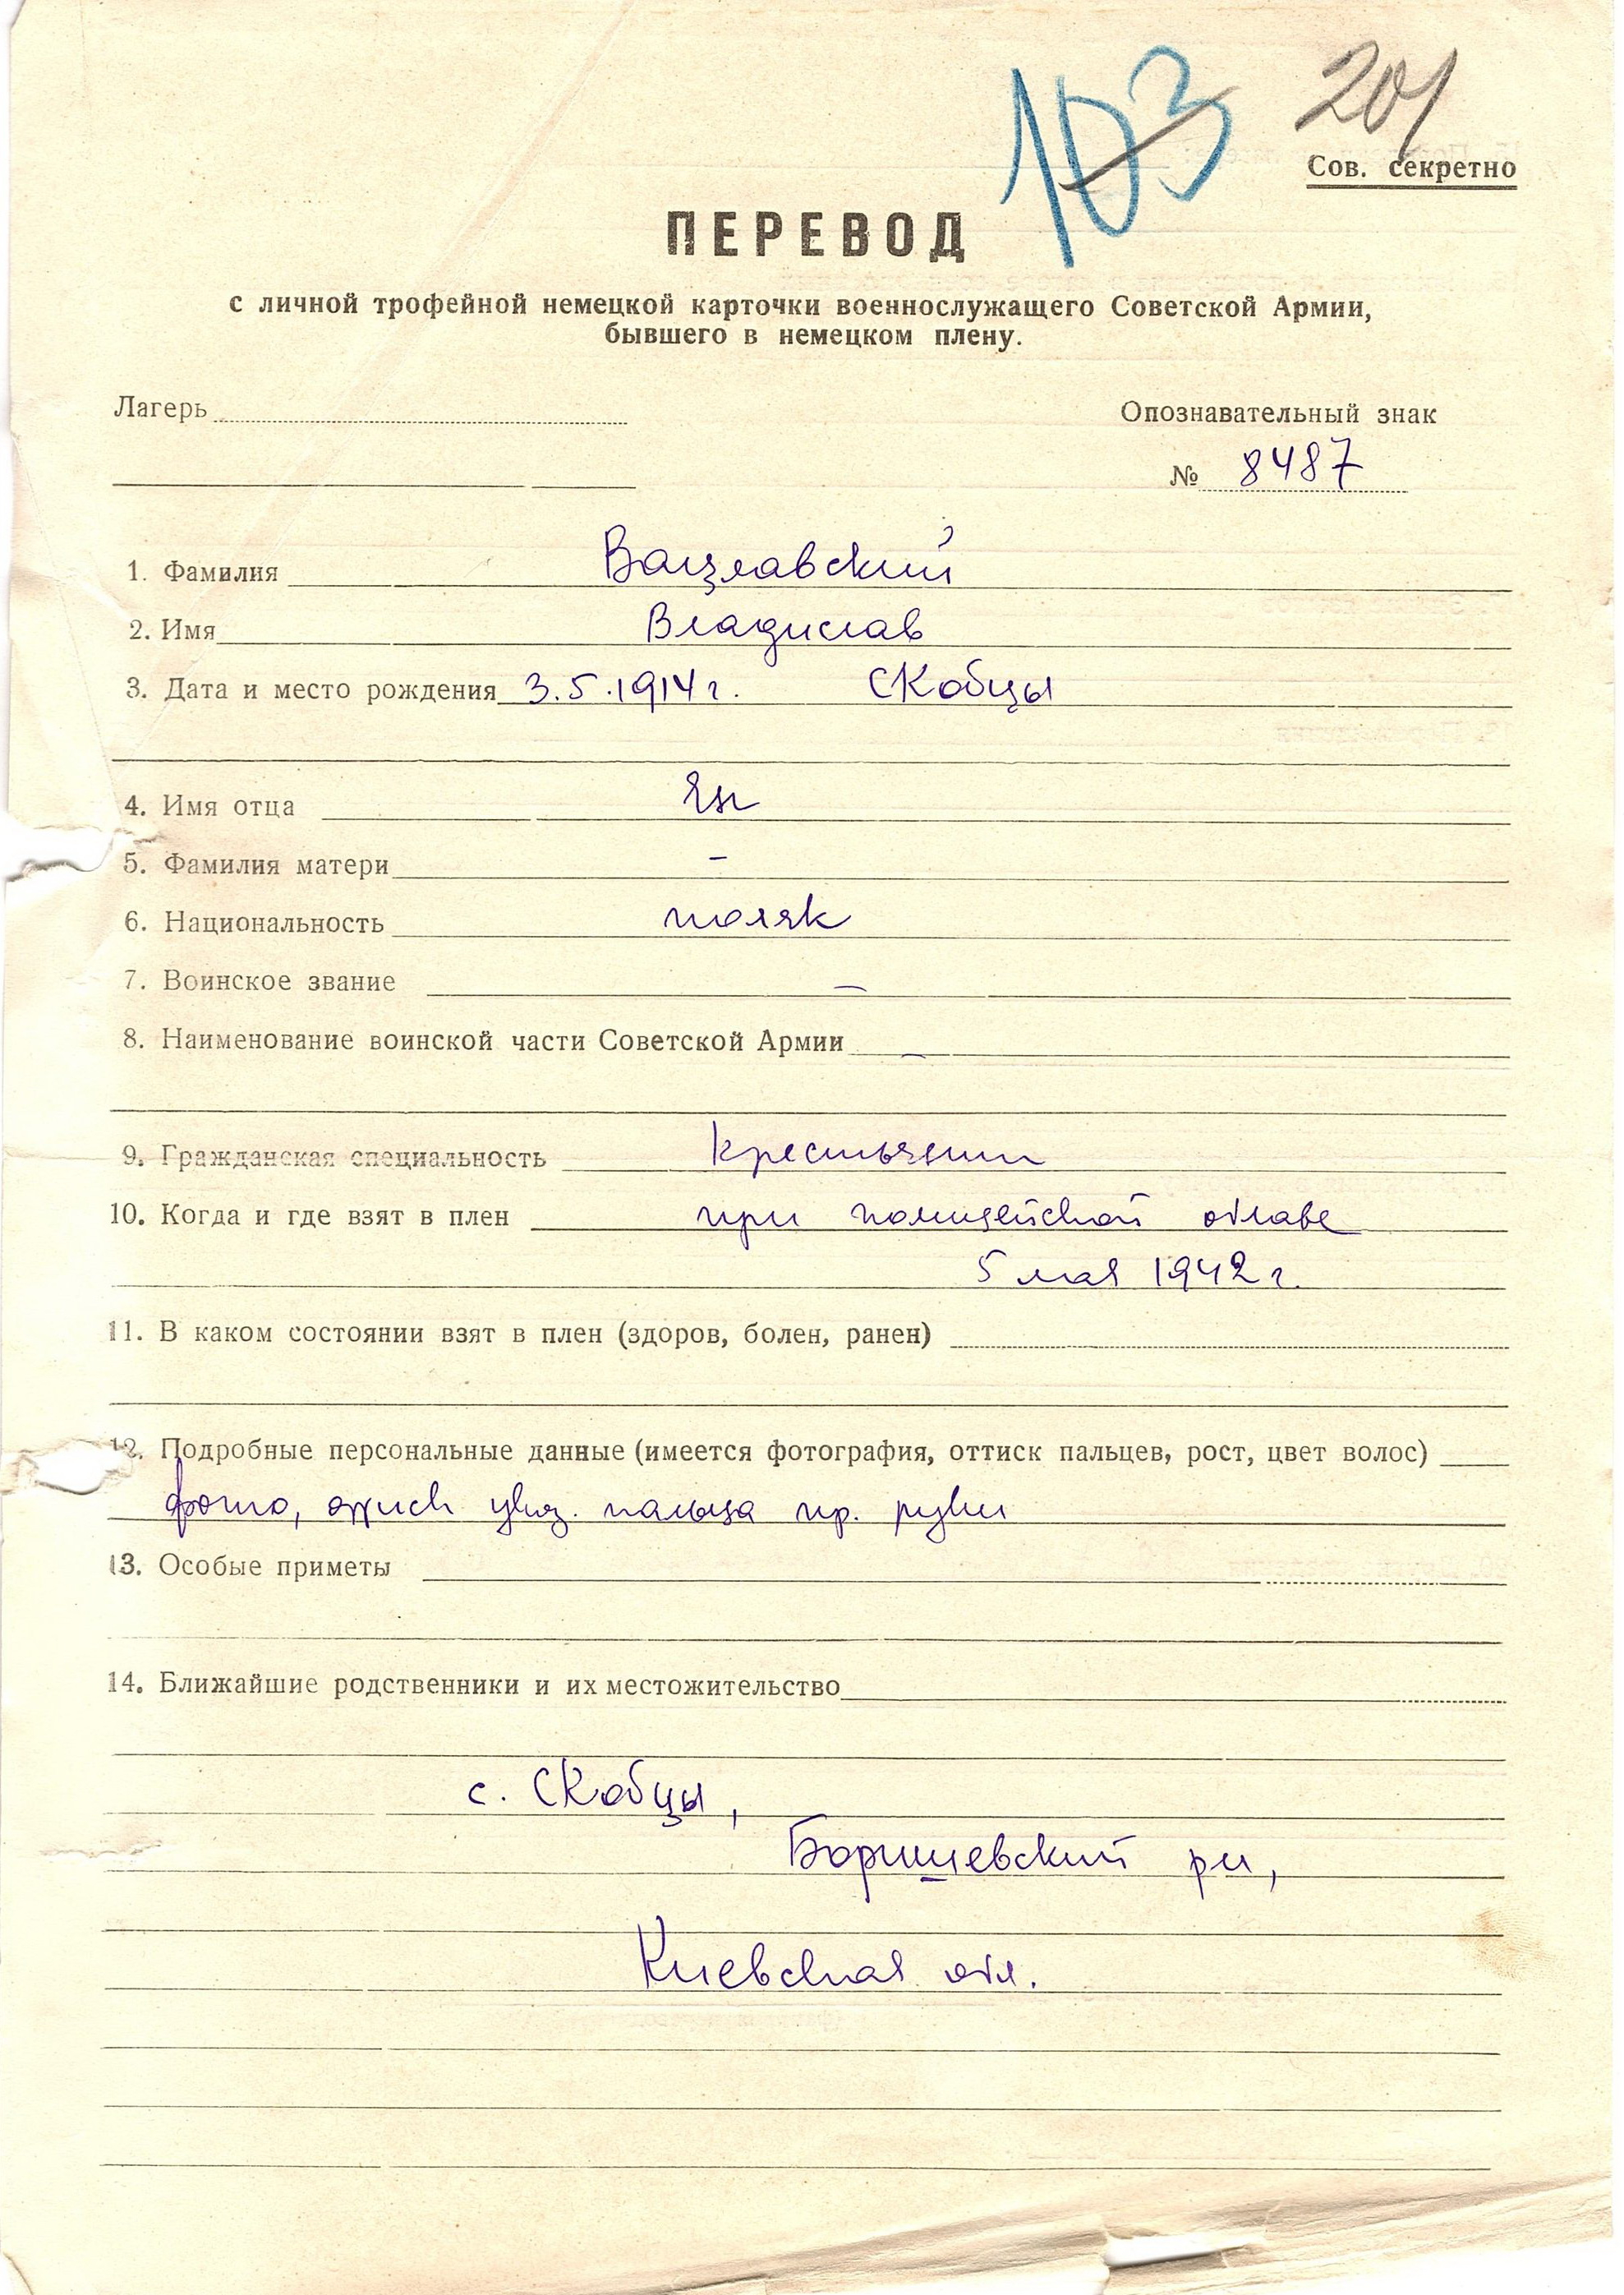 103 201
Сов. секретно
ПЕРЕВОД
с личной трофейной немецкой карточки военнослужащего Советской Армии,
бывшего в немецком плену.
Лагерь
Опознавательный знак
№ 8487
1. Фамилия Вацлавский
2. Имя Владислав
3. Дата и место рождения 3.5.1914 г. Скобцы
4. Имя отца Ян
5. Фамилия матери –
6. Национальность поляк
7. Воинское звание –
8. Наименование воинской части Советской Армии –
9. Гражданская специальность крестьянин
10. Когда и где взят в плен при полицейской облаве
5 мая 1942 г.
11. В каком состоянии взят в плен (здоров, болен, ранен)
12. Подробные персональные данные (имеется фотография, оттиск пальцев, рост, цвет волос)
фото, оттиск указ. пальца пр. руки
13. Особые приметы
14. Ближайшие родственники и их местожительство
с. Скобцы,
Боришевский рн,
Киевская обл.